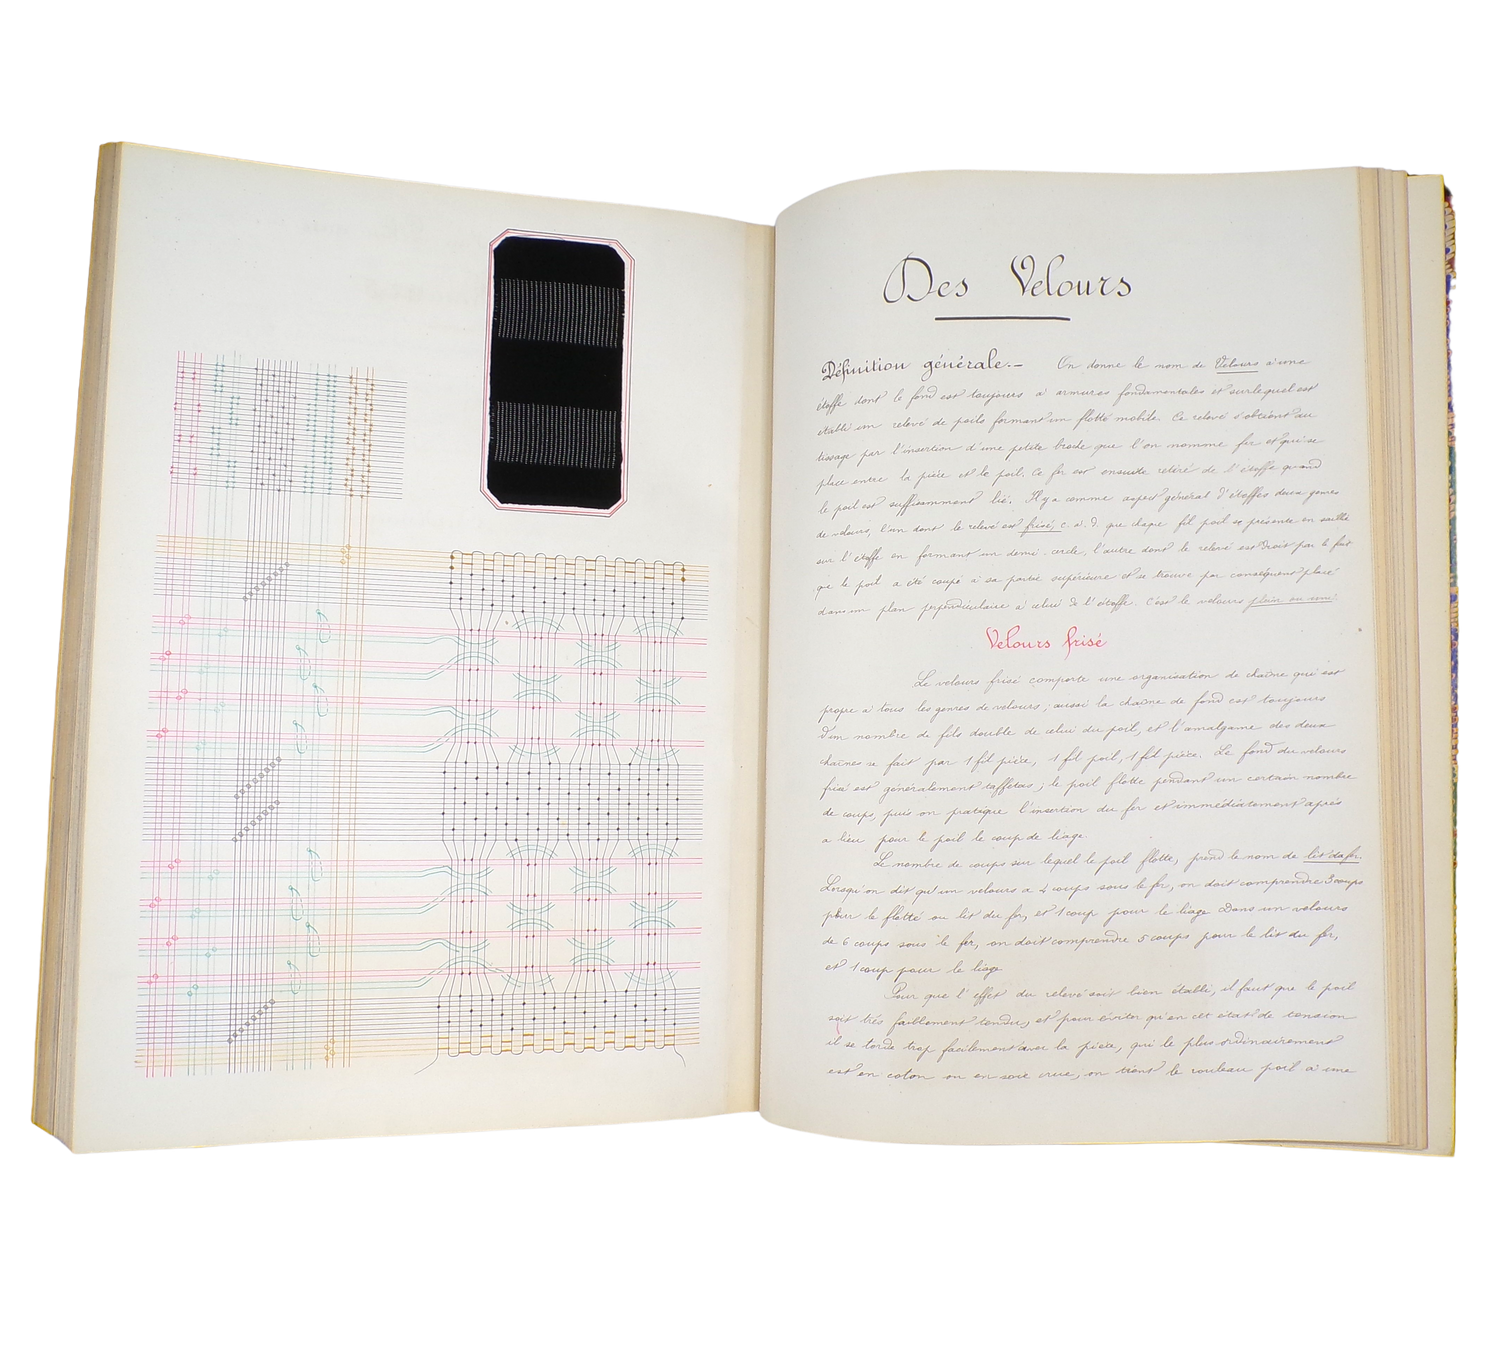 Des Velours
Définition générale.- On donne le nom de Velours à une
étoffe dont le fond est toujours à armures fondamentales et sur lequel est
établi un relevé de poils formant un flotté mobile. Ce relevé s'obtient au
tissage par l'insertion d'une petite broche que l'on nomme fer et qui se
place entre la pièce et le poil. Ce fer est ensuite retiré de l'étoffe quand
le poil est suffisamment lié. Il y a comme aspect général d'étoffes deux genres
de velours, l'un dont le relevé est frisé, c. à. d. que chaque fil poil se présente en saillie
sur l'étoffe en formant un demi-cercle, l'autre dont le relevé est droit par le fait
que le poil a été coupé à sa partie supérieure et se trouve par conséquent placé
dans un plan perpendiculaire à celui de l'étoffe. C'est le velours plain ou uni.
Velours frisé
Le velours frisé comporte une organisation de chaîne qui est
propre à tous les genres de velours; aussi la chaîne de fond est toujours
d'un nombre de fils double de celui du poil, et l'amalgame des deux
chaînes se fait par 1 fil pièce, 1 fil poil, 1 fil pièce. Le fond du velours
frisé est généralement taffetas; le poil flotte pendant un certain nombre
de coups, puis on pratique l'insertion du fer et immédiatement après
a lieu pour le poil le coup de liage.
Le nombre de coups sur lequel le poil flotte, prend le nom de lit du fer.
Lorsqu'on dit qu'un velours a 4 coups sous le fer, on doit comprendre 3 coups
pour le flotté ou lit du fer, et 1 coup pour le liage. Dans un velours
de 6 coups sous le fer, on doit comprendre 5 coups pour le lit du fer,
et 1 coup pour le liage.
Pour que l'effet du relevé soit bien établi, il faut que le poil
soit très faiblement tendu, et pour éviter qu'en cet état de tension
il se torde trop facilement avec la pièce, qui le plus ordinairement
est en coton ou en soie crue, on tient le rouleau poil à une